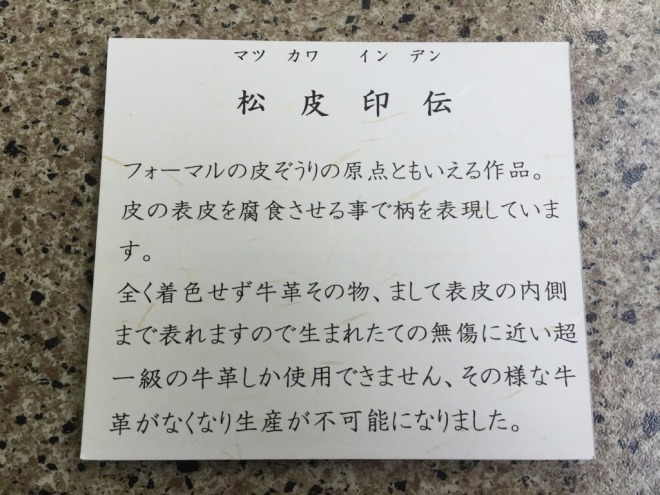 マツ カワ イン デン
松皮印伝
フォーマルの皮ぞうりの原点ともいえる作品。
皮の表皮を腐食させる事で柄を表現していま
す。
全く着色せず牛革その物、まして表皮の内側
まで表れますので生まれたての無傷に近い超
一級の牛革しか使用できません、その様な牛
革がなくなり生産が不可能になりました。